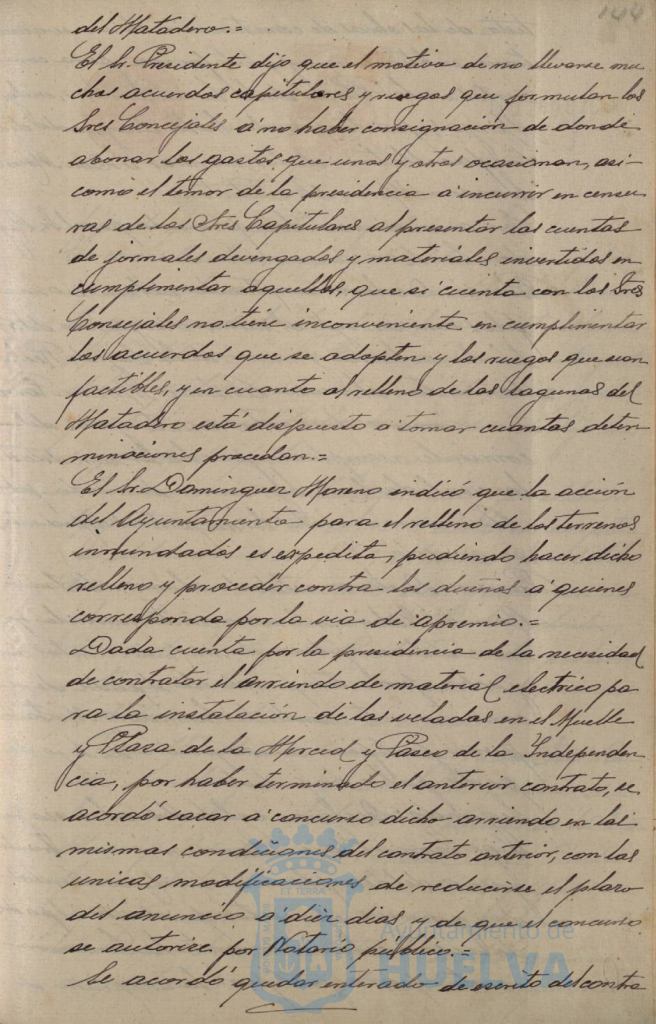 144
del Matadero.=
El Sr. Presidente dijo que el motivo de no llevarse mu-
chos acuerdos capitulares y ruegos que formulan los
Sres Concejales a no haber consignación de donde
abonar los gastos que unos y otros ocasionan, asi
como el temor de la presidencia a incurrir en censu-
ras de los Sres Capitulares al presentar las cuentas
de jornales devengados y materiales invertidos en
cumplimentar aquellos, que si cuenta con los Sres
Concejales no tiene inconveniente en cumplimentar
los acuerdos que se adopten y los ruegos que sean
factibles, y en cuanto al relleno de las lagunas del
Matadero está dispuesto a tomar cuantas deter-
minaciones procedan.=
El Sr. Dominguez Moreno indicó que la acción
del Ayuntamiento para el relleno de los terrenos
inmundados es expedita, pudiendo hacer dicho
relleno y proceder contra los dueños a quienes
corresponda por la via de apremio.=
Dada cuenta por la presidencia de la necesidad
de contratar el arriendo de material electrico pa
ra la instalación de las veladas en el Muelle
y Plaza de la Merced y Paseo de la Independen-
cia, por haber terminado el anterior contrato, se
acordó sacar a concurso dicho arriendo en las
mismas condiciones del contrato anterior, con las
unicas modificaciones de reducirse el plazo
del anuncio a diez dias y de que el concurso
se autorice por Notario publico.=
Se acordó quedar enterado de escrito del contra
Ayuntamiento de
HUELVA